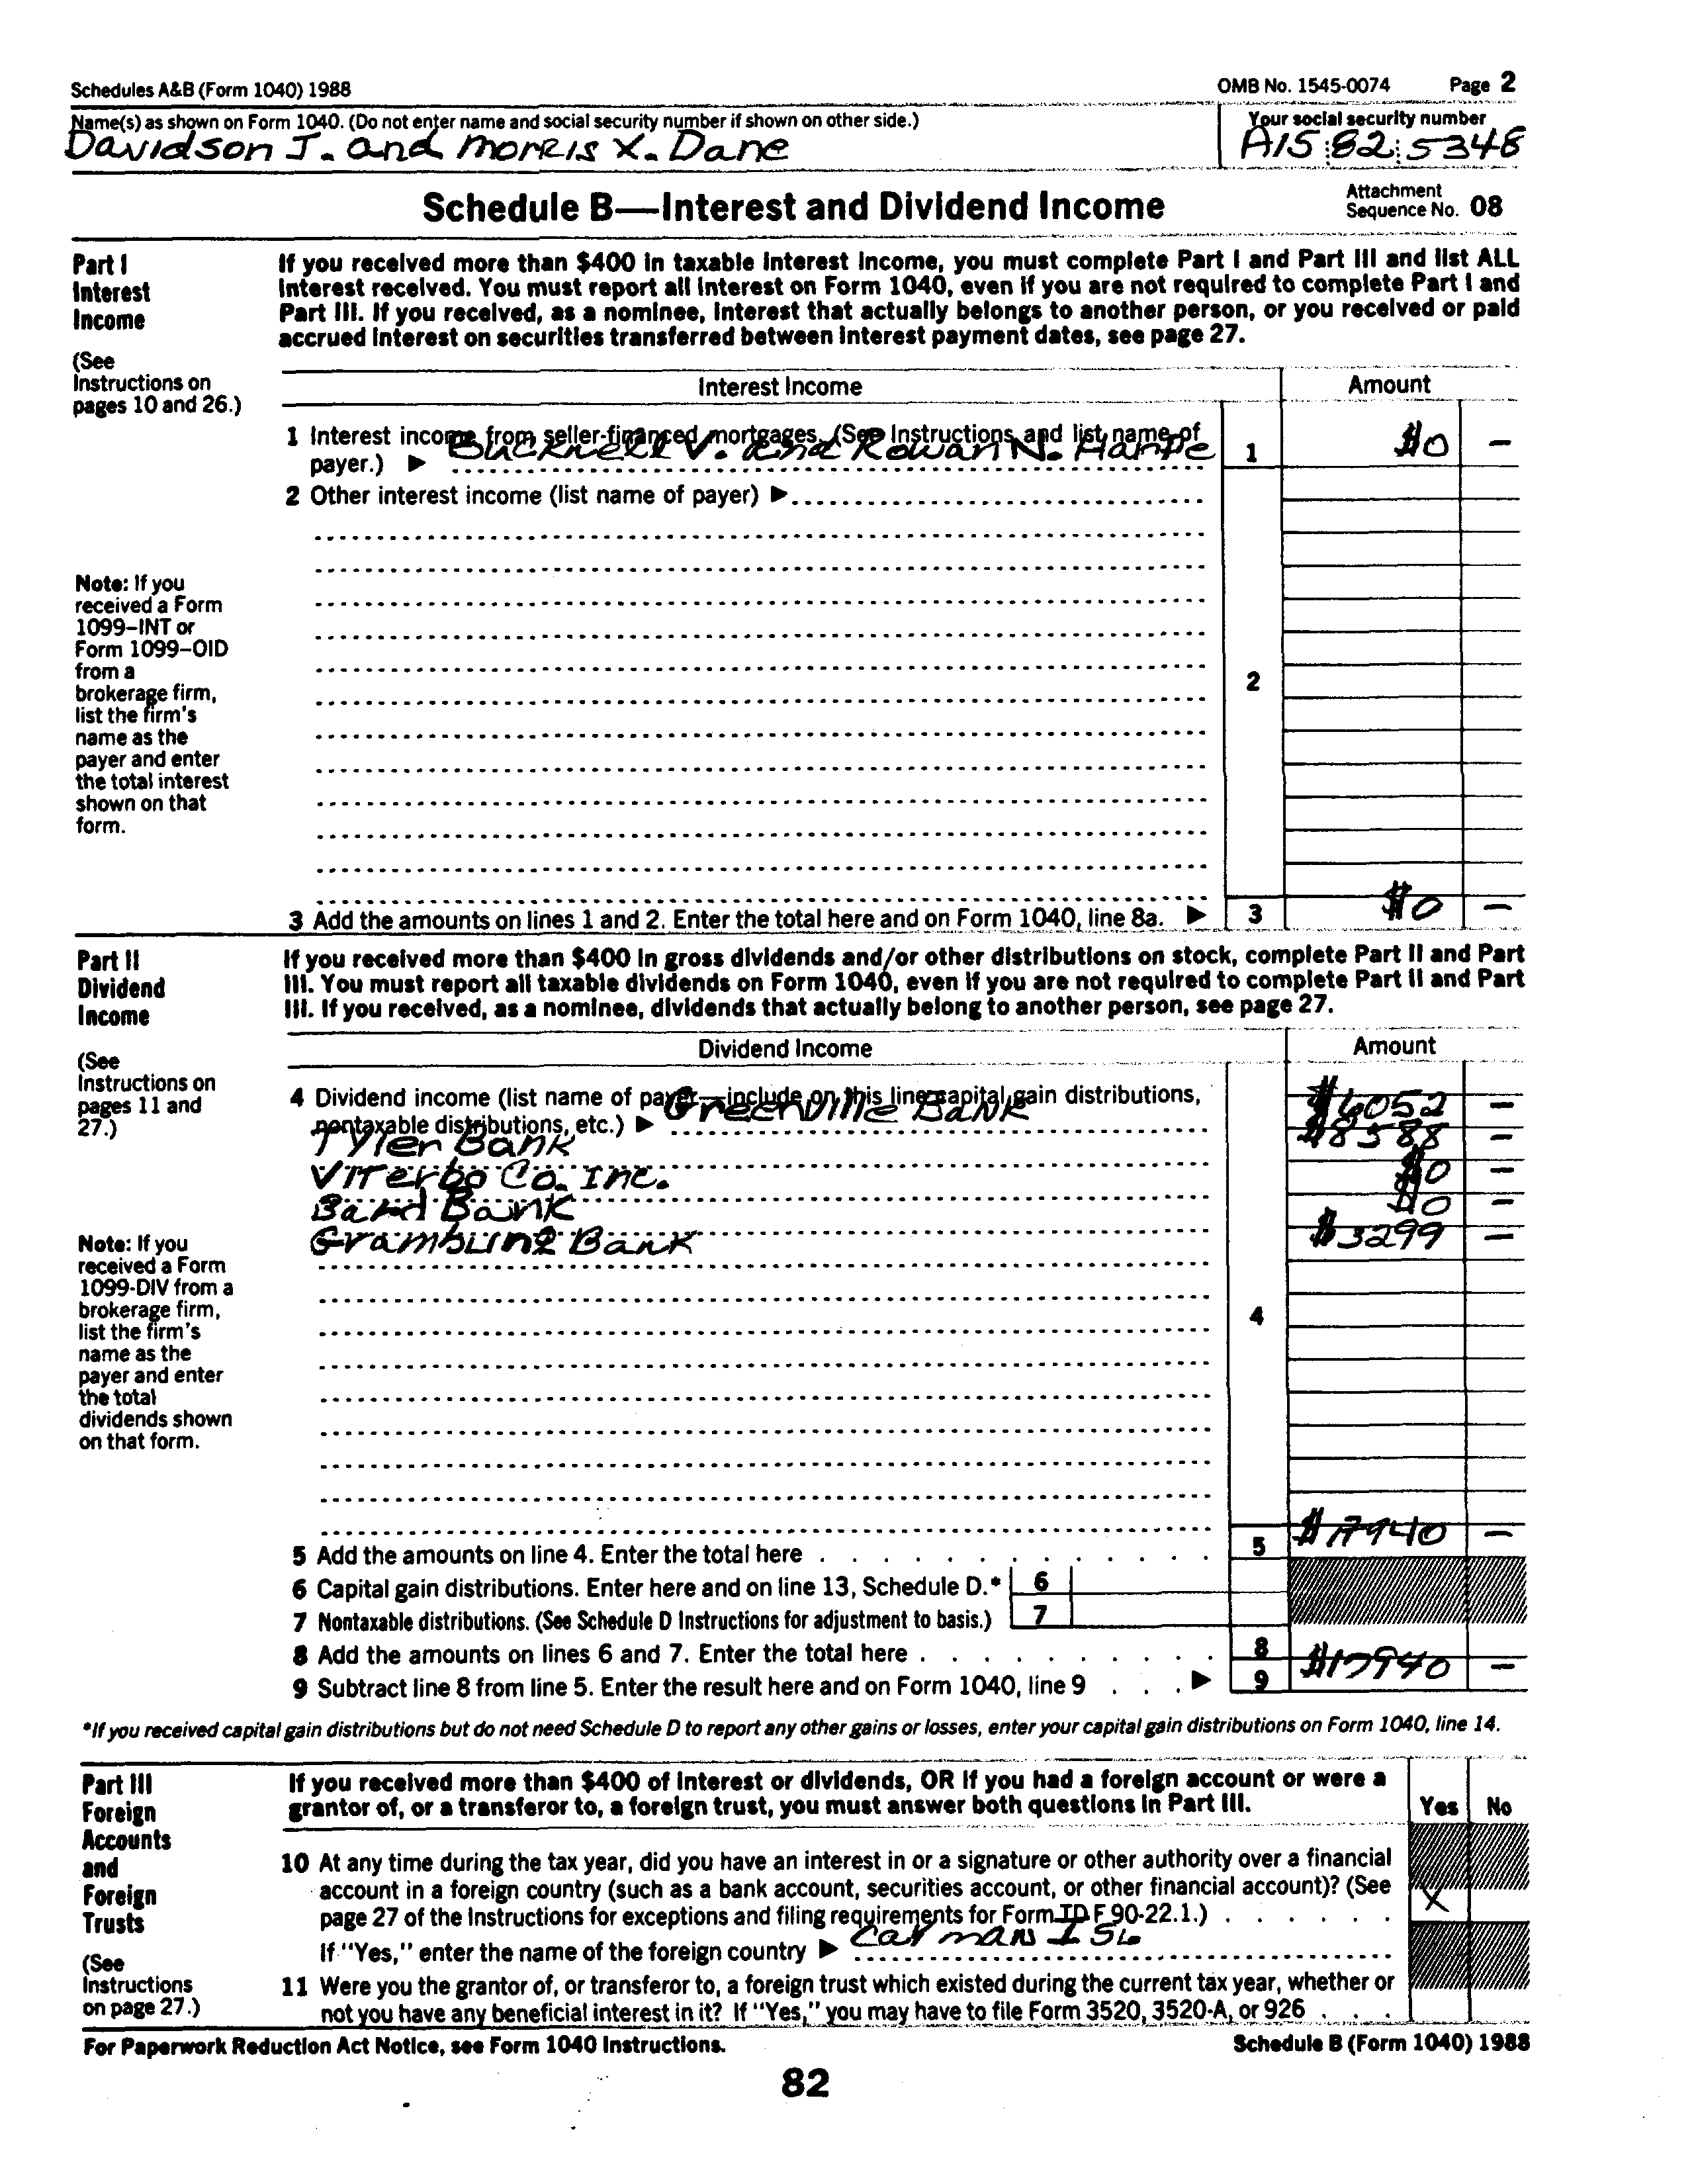 Schedules A&B (Form 1040) 1988 OMB No. 1545-0074 Page 2
Name(s) as shown on Form 1040. (Do not enter name and social security number if shown on other side.) Your social security number
Davidson J. and Morris X. Dane A15 82 5348
Schedule B—Interest and Dividend Income Attachment Sequence No. 08
Part I
Interest
Income
(See
Instructions on
pages 10 and 26.)
If you received more than $400 in taxable interest income, you must complete Part I and Part III and list ALL
interest received. You must report all interest on Form 1040, even if you are not required to complete Part I and
Part III. If you received, as a nominee, interest that actually belongs to another person, or you received or paid
accrued interest on securities transferred between interest payment dates, see page 27.
Interest Income Amount
1 Interest income from seller-financed mortgages. (See Instructions and list name of
payer.) ▶ Bucknell V. and Rowan N. 1 $0 –
2 Other interest income (list name of payer) ▶
Note: If you
received a Form
1099–INT or
Form 1099–OID
from a
brokerage firm,
list the firm's
name as the
payer and enter
the total interest
shown on that
form.
2
3 Add the amounts on lines 1 and 2. Enter the total here and on Form 1040, line 8a. ▶ 3 $0 –
Part II
Dividend
Income
(See
Instructions on
pages 11 and
27.)
If you received more than $400 in gross dividends and/or other distributions on stock, complete Part II and Part
III. You must report all taxable dividends on Form 1040, even if you are not required to complete Part II and Part
III. If you received, as a nominee, dividends that actually belong to another person, see page 27.
Dividend Income Amount
4 Dividend income (list name of payer—include on this line capital gain distributions,
nontaxable distributions, etc.) ▶ Greenville Bank $6052 –
Tyler Bank $8588 –
Viterbo Co. Inc. $0 –
Bard Bank $0 –
Grambling Bank $3299 –
Note: If you
received a Form
1099-DIV from a
brokerage firm,
list the firm's
name as the
payer and enter
the total
dividends shown
on that form.
4
5 Add the amounts on line 4. Enter the total here 5 $17940 –
6 Capital gain distributions. Enter here and on line 13, Schedule D.* 6
7 Nontaxable distributions. (See Schedule D Instructions for adjustment to basis.) 7
8 Add the amounts on lines 6 and 7. Enter the total here 8
9 Subtract line 8 from line 5. Enter the result here and on Form 1040, line 9 ▶ 9 $17940 –
*If you received capital gain distributions but do not need Schedule D to report any other gains or losses, enter your capital gain distributions on Form 1040, line 14.
Part III
Foreign
Accounts
and
Foreign
Trusts
(See
Instructions
on page 27.)
If you received more than $400 of interest or dividends, OR if you had a foreign account or were a
grantor of, or a transferor to, a foreign trust, you must answer both questions in Part III. Yes No
10 At any time during the tax year, did you have an interest in or a signature or other authority over a financial
account in a foreign country (such as a bank account, securities account, or other financial account)? (See
page 27 of the Instructions for exceptions and filing requirements for Form TD F 90-22.1.) X
If "Yes," enter the name of the foreign country ▶ Cayman ISL
11 Were you the grantor of, or transferor to, a foreign trust which existed during the current tax year, whether or
not you have any beneficial interest in it? If "Yes," you may have to file Form 3520, 3520-A, or 926
For Paperwork Reduction Act Notice, see Form 1040 Instructions. Schedule B (Form 1040) 1988
82